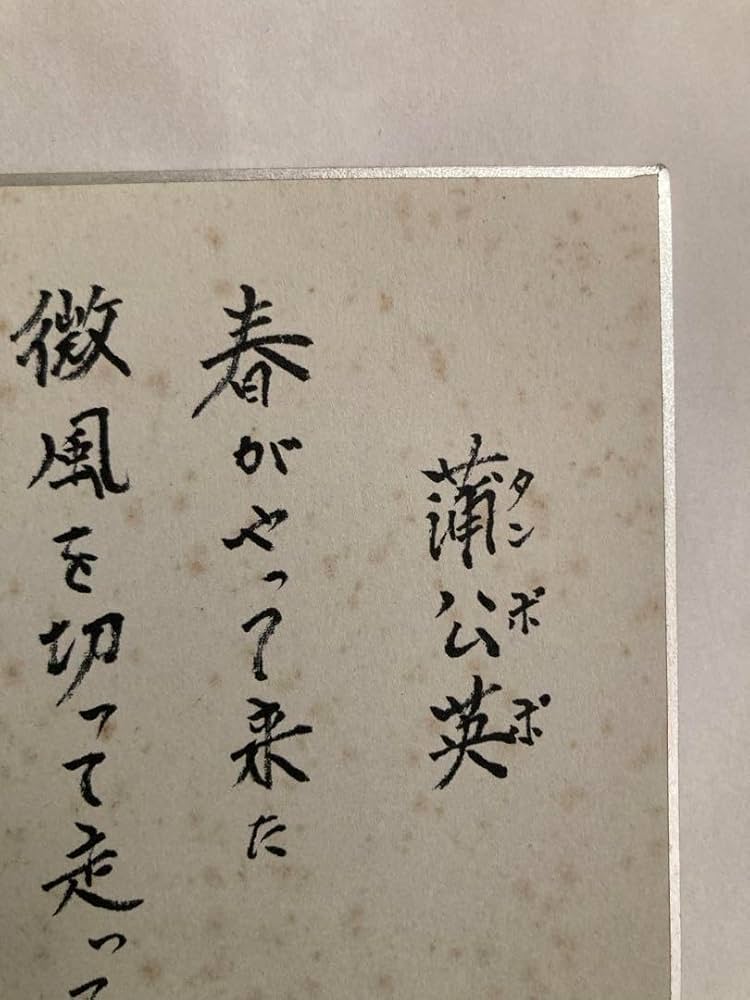 蒲公英
タンポポ
春がやって来た
微風を切って走って